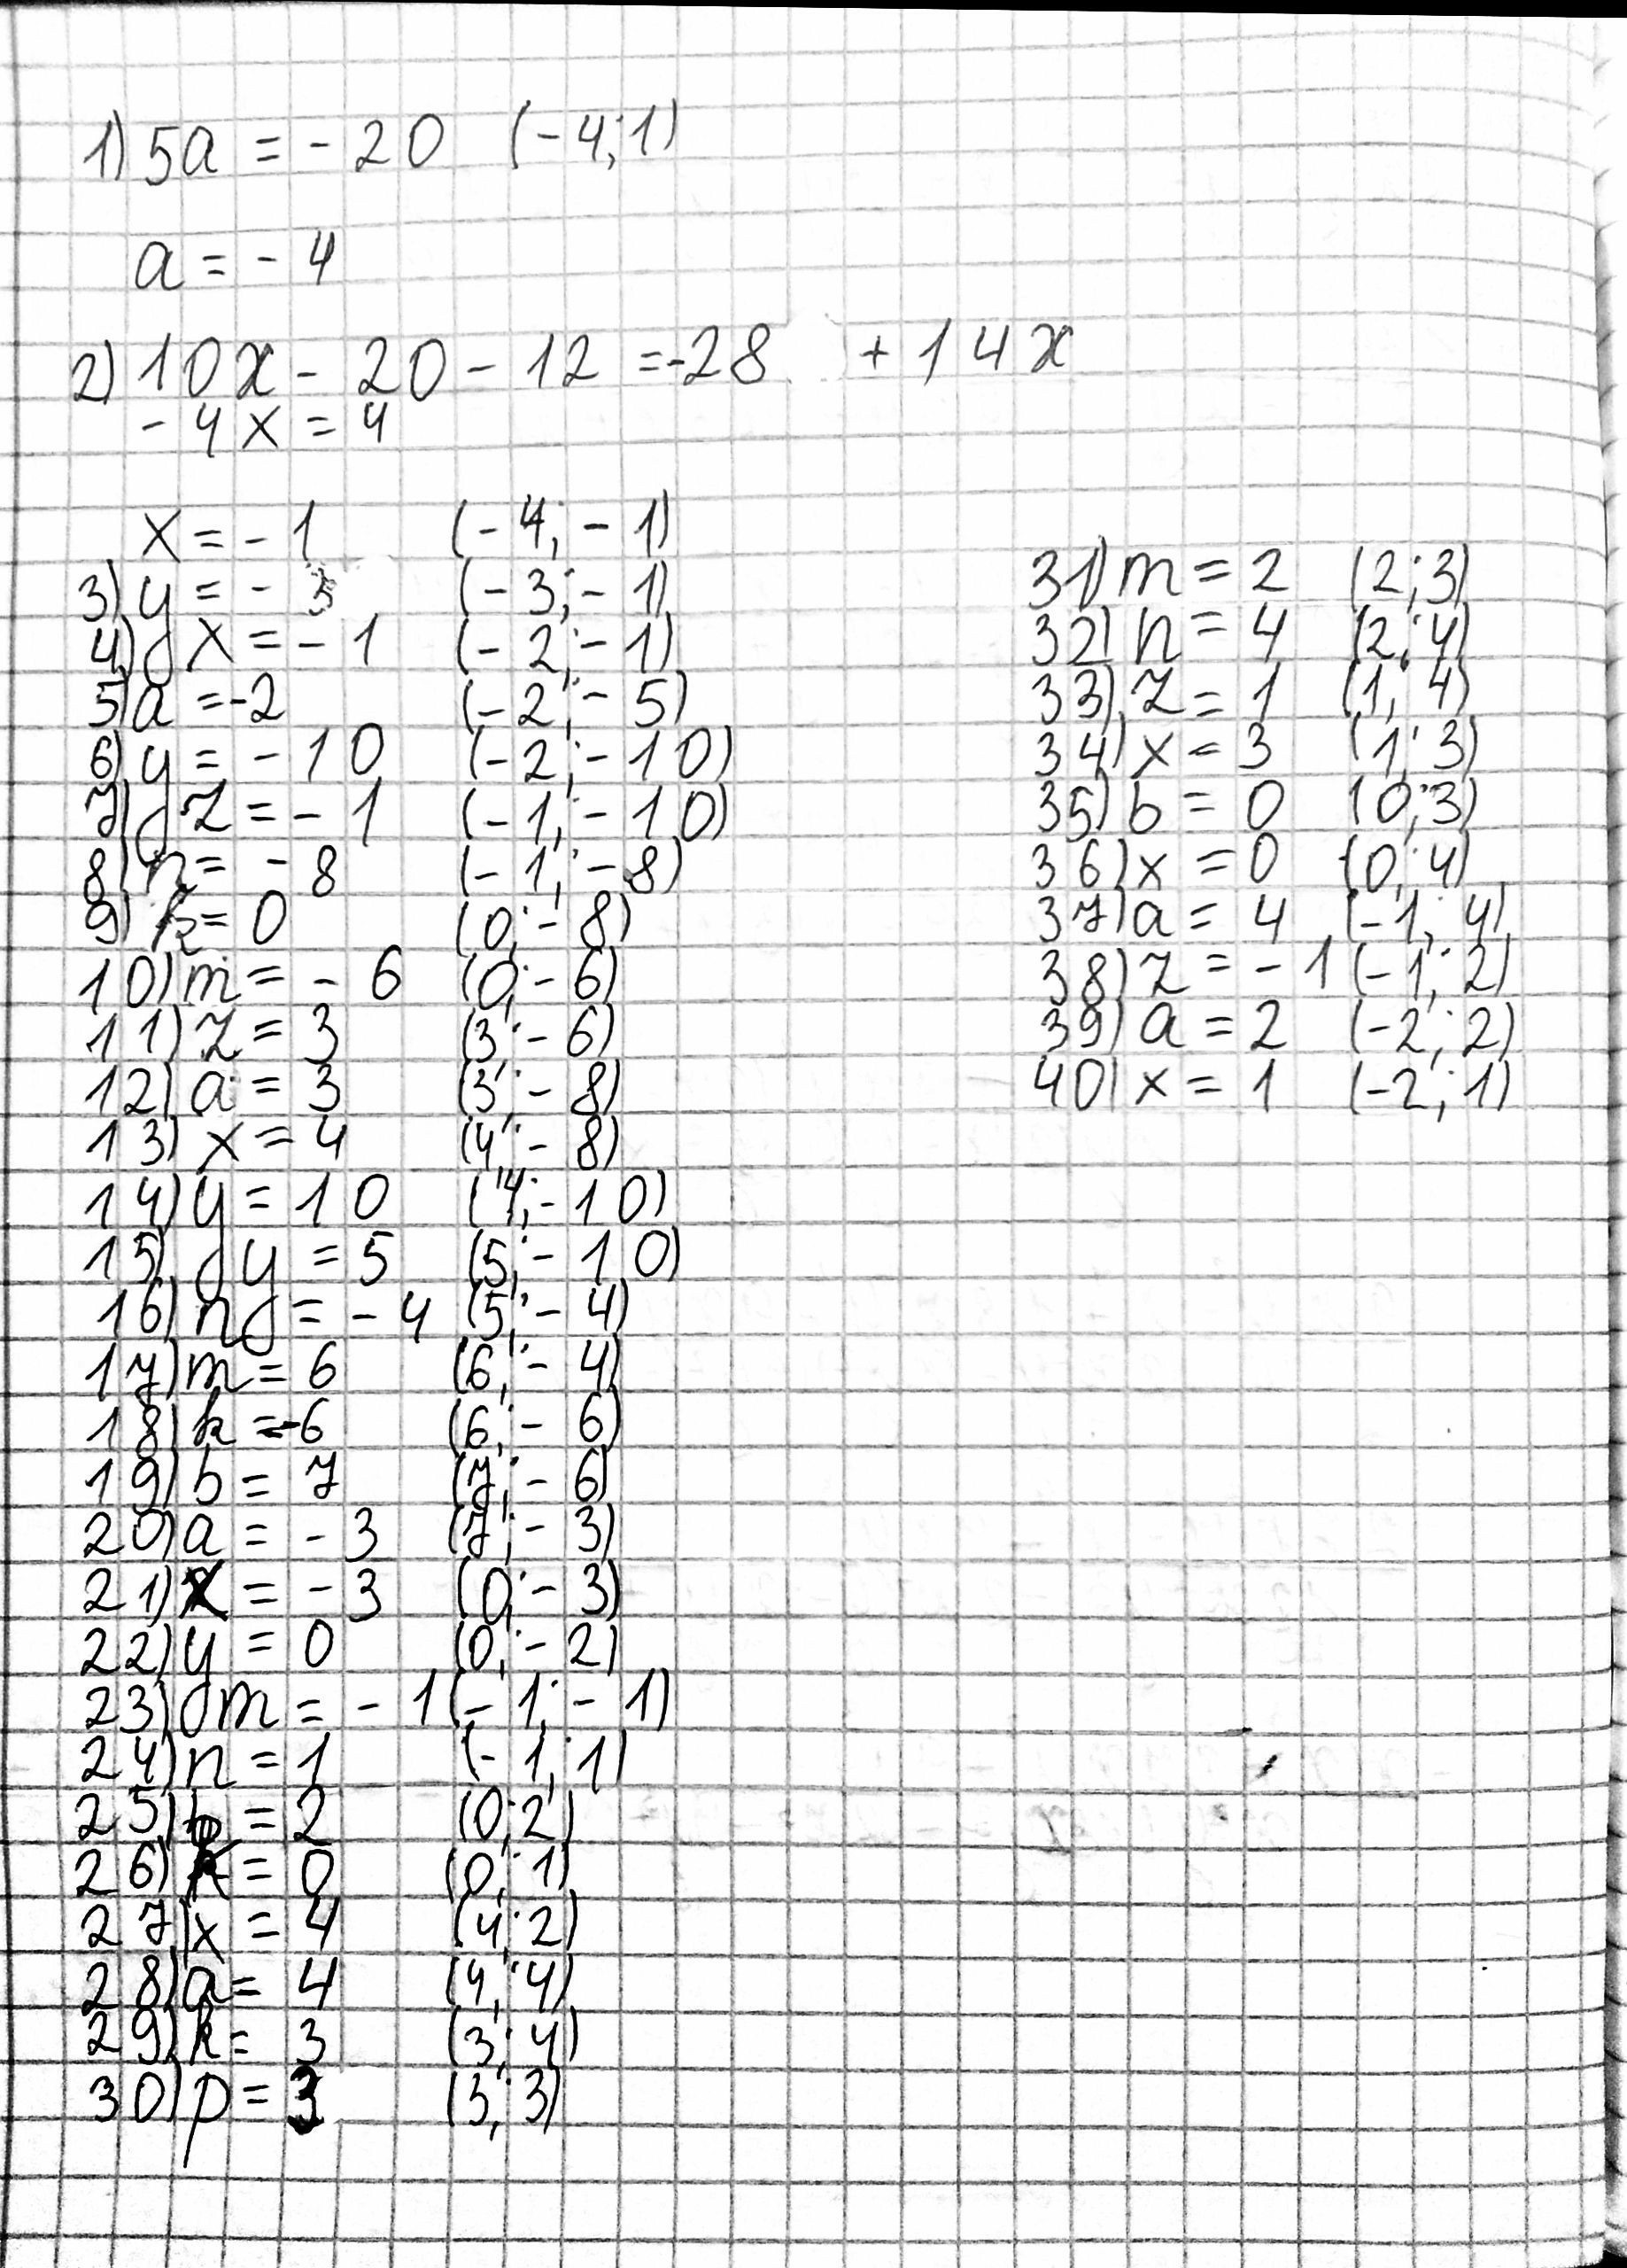 1) 5a = - 20 (-4; 1)
a = - 4
2) 10x - 20 - 12 = -28 + 14x
- 4x = 4
x = - 1 (- 4; - 1)
3) y = - 3 (- 3; - 1)
4) x = - 1 (- 2; - 1)
5) a = -2 (- 2; - 5)
6) y = - 10 (- 2; - 10)
7) z = - 1 (- 1; - 10)
8) n = - 8 (- 1; - 8)
9) k = 0 (0; - 8)
10) m = - 6 (0; - 6)
11) z = 3 (3; - 6)
12) a = 3 (3; - 8)
13) x = 4 (4; - 8)
14) y = 10 (4; - 10)
15) y = 5 (5; - 10)
16) n = - 4 (5; - 4)
17) m = 6 (6; - 4)
18) k = -6 (6; - 6)
19) b = 7 (7; - 6)
20) a = - 3 (7; - 3)
21) x = - 3 (0; - 3)
22) y = 0 (0; - 2)
23) m = - 1 (- 1; - 1)
24) n = 1 (- 1; 1)
25) b = 2 (0; 2)
26) k = 0 (0; 1)
27) x = 4 (4; 2)
28) a = 4 (4; 4)
29) k = 3 (3; 4)
30) p = 3 (3; 3)
31) m = 2 (2; 3)
32) n = 4 (2; 4)
33) z = 1 (1; 4)
34) x = 3 (1; 3)
35) b = 0 (0; 3)
36) x = 0 (0; 4)
37) a = 4 (-1; 4)
38) z = - 1 (-1; 2)
39) a = 2 (-2; 2)
40) x = 1 (-2; 1)